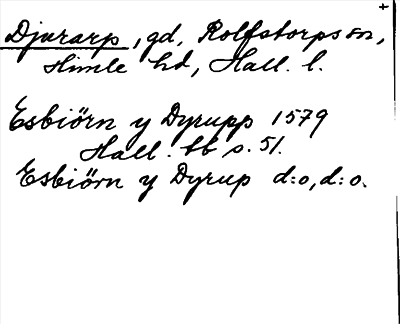 +
Djurarp, gd, Rolfstorps sn,
Himle hd, Hall. l.
Esbiörn y Dyrupp 1579
Hall. bb s. 51.
Esbiörn y Dyrup d:o, d:o.